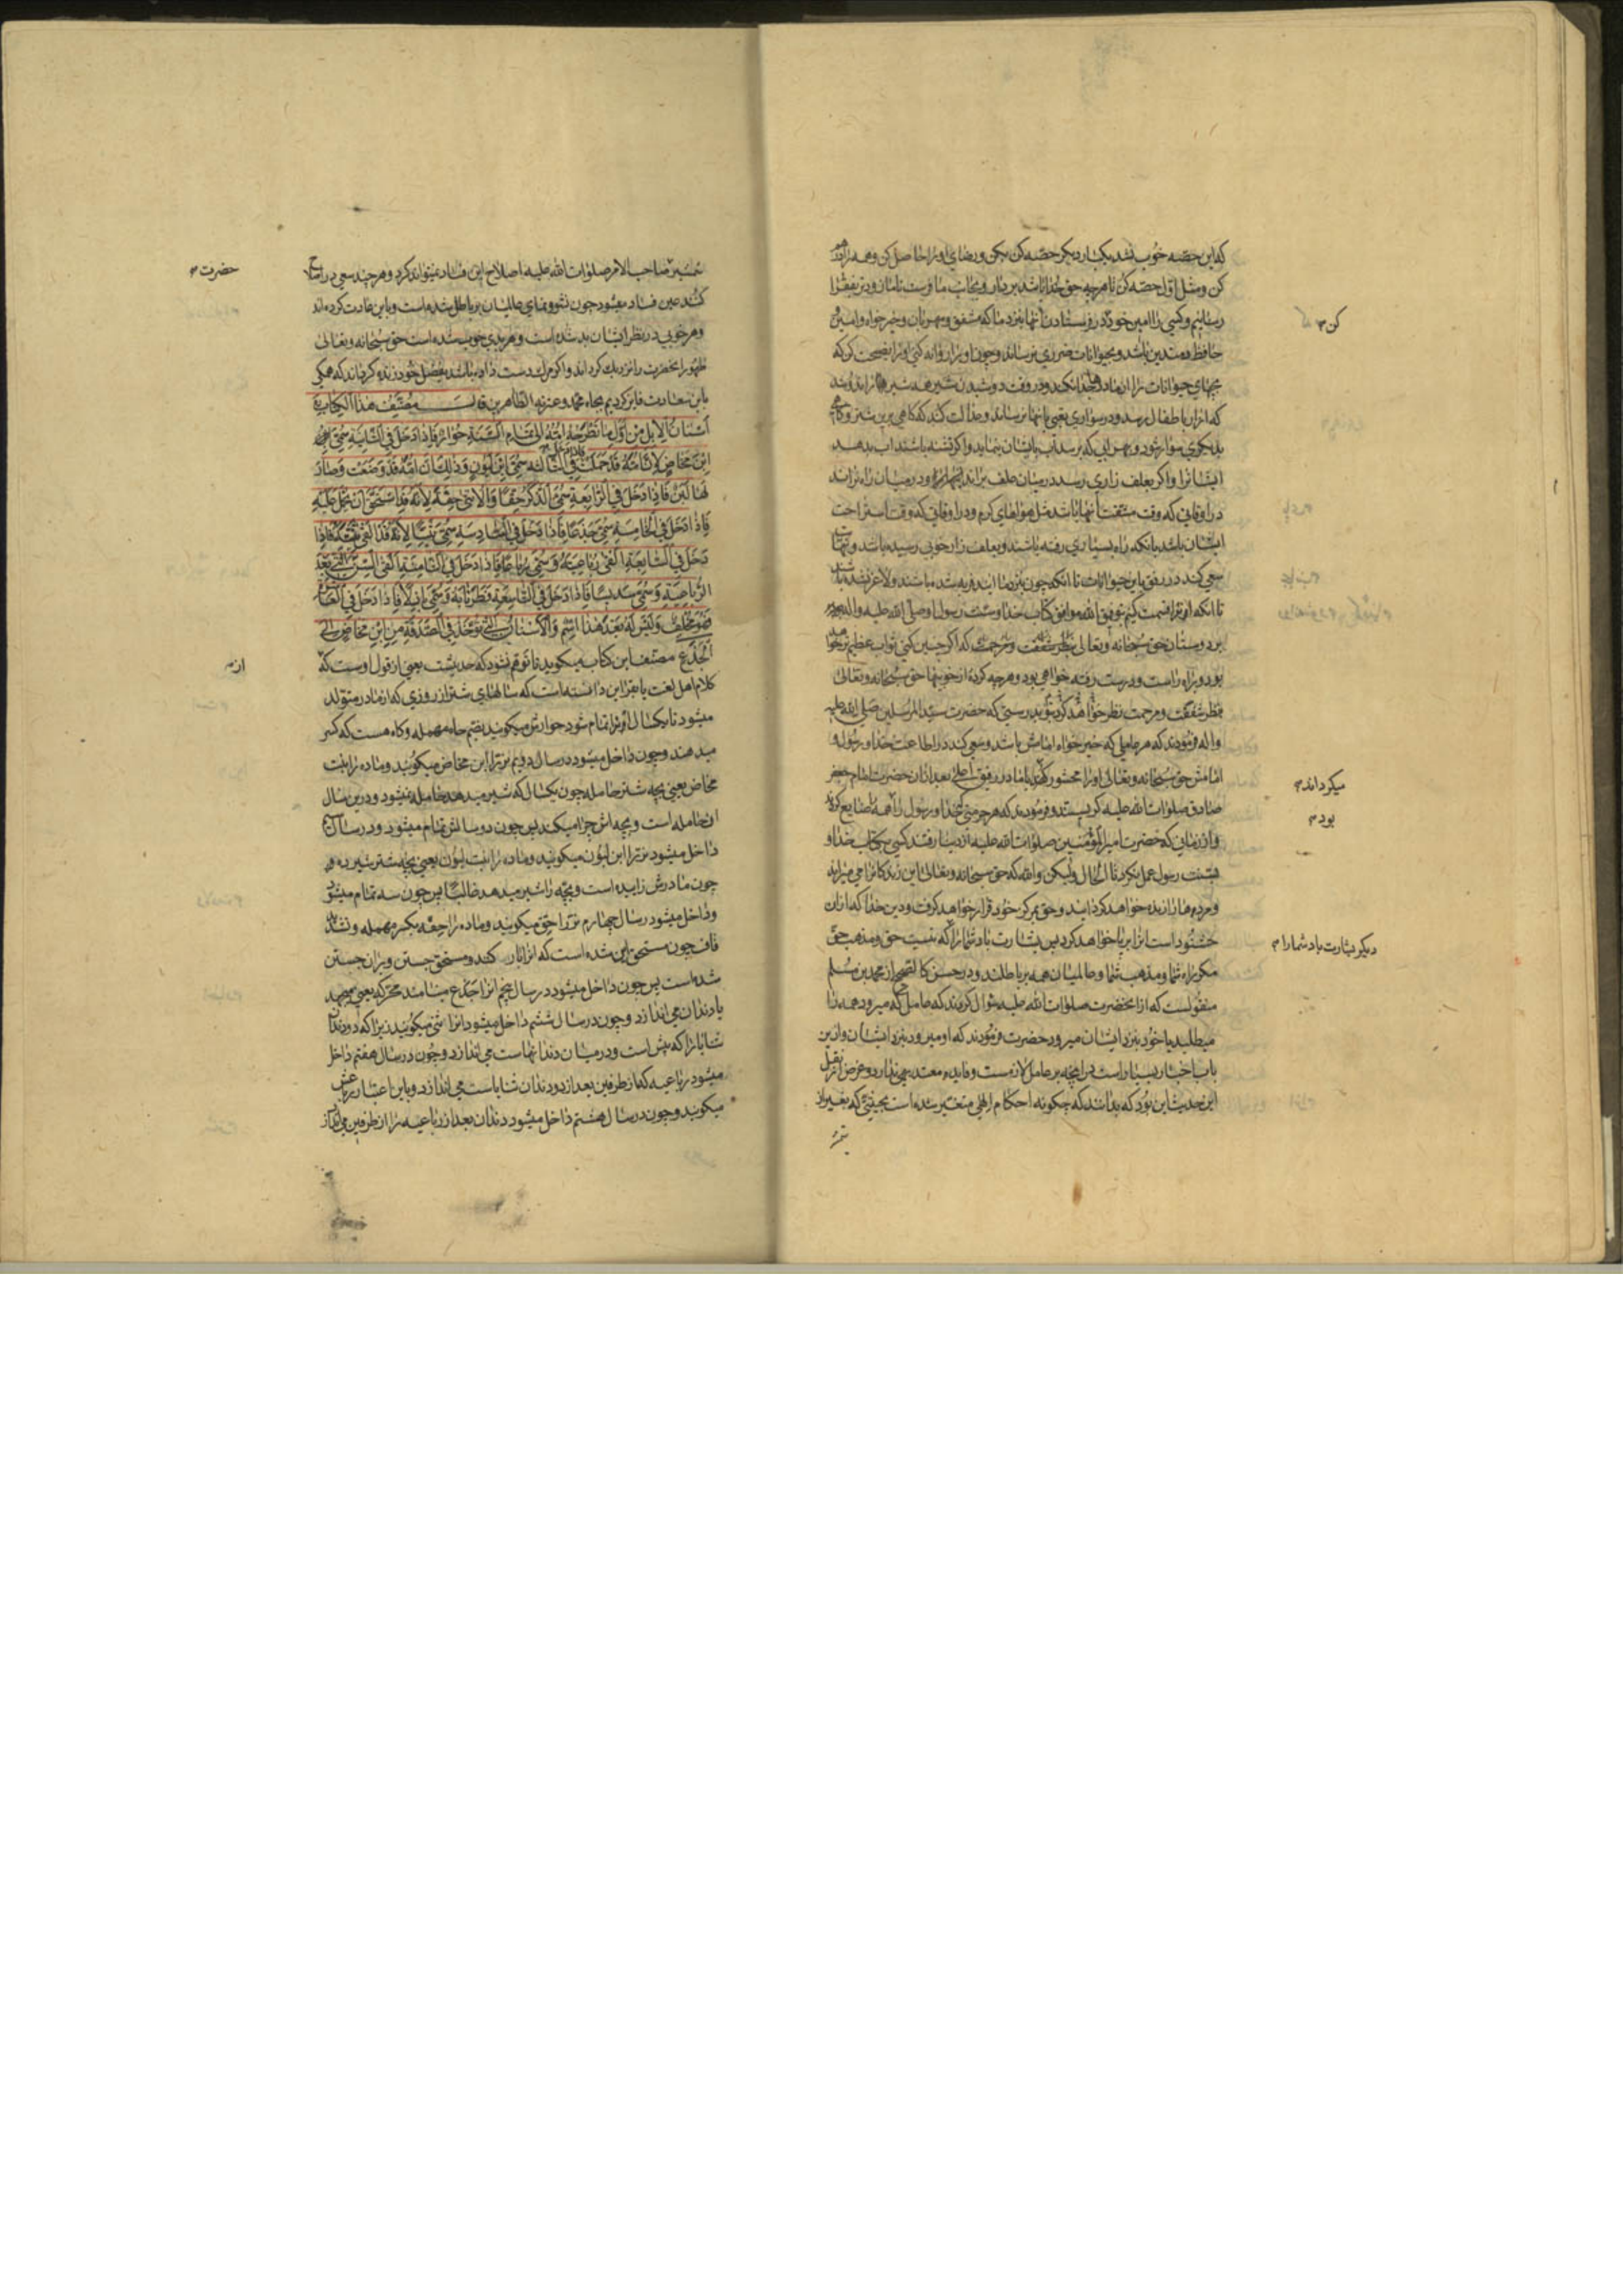 که این حصه خوب نشد یکبار دیگر حصه کن بکن و رضای او را حاصل کن و همه را
کن و مثل اول حصه کن تا هرچه حق خدا باشد بردار و بجانب ما فرست تا ما آن را بفقرا
رسانیم و کسی را امین خود در فرستادن آنها بنزد ما که مشفق و مهربان و خیرخواه و امین و
حافظ و متدین باشد و بحیوانات ضرری نرساند و چون او را روانه کنی او را نصیحت کن که
بچهای حیوانات را از مادر جدا نکند و در وقت دوشیدن شیر همه شیرها را ندوشد
که اضرار باطفال رسد و در سواری تعبی بآنها نرساند و عدالت کند که گاهی برین شتر و گاهی
بدیگری سوار شود و بهر آبی که برسد آب بایشان بنماید و اگر تشنه باشند آب بدهد
ایشانرا و اگر بعلف زاری رسد در میان علف براند و در میان راه نراند
در اوقاتی که وقت مشقت آنها باشد مثل هواهای گرم و در اوقاتی که وقت استراحت
ایشان باشد بانکه راه بسیاری رفته باشند و بعلف زار خوبی رسیده باشد
سعی کند در رفق باین حیوانات تا آنکه چون بنزد ما آیند فربه شده باشند و لاغر نشده باشند
تا آنکه او را قسمت کنیم بتوفیق الله موافق کتاب خدا و سنت رسول او صلی الله علیه و اله
بر دوستان حق سبحانه و تعالی بنظر شفقت و مرحمت که اگر چنین کنی ثواب عظیم ترا خواهد
بود و براه راست و درست رفته خواهی بود و هرچه کرده از خوبیها حق سبحانه و تعالی
بنظر شفقت و مرحمت نظر خواهد کرد بتو بدرستی که حضرت سید المرسلین صلی الله علیه
و اله فرمودند که هر عاملی که خیرخواه امامش باشد و سعی کند در اطاعت خدا و رسول و
امامش حق سبحانه و تعالی او را محشور با ما در رفیق اعلی بعد از آن حضرت امام جعفر
صادق صلوات الله علیه گریستند و فرمودند که هر حرمتی که خدا و رسول را همه را ضایع کردند
و از زمانی که حضرت امیرالمؤمنین صلوات الله علیه از دنیا رفتند کسی بکتاب خدا و
بسنت رسول عمل نکرد تا الحال ولیکن والله که حق سبحانه و تعالی این زندگانرا می میراند
و مردها را زنده خواهد گردانید و حق بمرکز خود قرار خواهد گرفت و دین خدا که از آن
خشنود است آنرا برپا خواهد کرد پس بشارت باد شما را که نیست حق و مذهب حق
مگر راه شما و مذهب شما و عالمیان همه بر باطلند و در حسن کالصحیح از محمد بن مسلم
منقولست که از انحضرت صلوات الله علیه سؤال کردند که عامل که میرود همه را
میطلبد یا خود بنزد ایشان میرود حضرت فرمودند که او میرود بنزد ایشان و ازین
باب اخبار بسیار است پس آنچه بر عامل لازمست و فایده معتد بهی ندارد و غرض از نقل
این حدیث این بود که بدانند که چگونه احکام الهی متغیر شده است بحیثیتی که بغیر از
کن
میگرداند
بود
دیگر بشارت باد شما را
شمشیر صاحب الامر صلوات الله علیه اصلاح این فساد نمیتواند کرد و هر چند سعی در اصلاح
کنند عین فساد میشود چون نشو و نمای عالمیان بر باطل شده است و باین عادت کرده اند
و هر خوبی در نظر ایشان بد شده است و هر بدی خوب شده است حق سبحانه و تعالی
ظهور انحضرت را نزدیک گرداند و اگر مرگ دست داده باشد بفضل خود زنده گرداند که همگی
باین سعادت فایز گردیم بجاه محمد و عترته الطاهرین قال مصنف هذا الکتاب
اسنان الابل من اول ما تطرحه امه الی تمام السنة حوار فاذا دخل فی الثانیة سمی
ابن مخاض لان امه قد حملت فاذا دخل فی الثالثة سمی ابن لبون و ذلک ان امه قد وضعت و صار
لها لبن فاذا دخل فی الرابعة سمی الذکر حقا و الانثی حقة لانه قد استحق ان یحمل علیه
فاذا دخل فی الخامسة سمی جذعا فاذا دخل فی السادسة سمی ثنیا لانه قد القی ثنیته فاذا
دخل فی السابعة القی رباعیته و سمی رباعا فاذا دخل فی الثامنة القی السن التی بعد
الرباعیة و سمی سدیسا فاذا دخل فی التاسعة فطر نابه و سمی بازلا فاذا دخل فی العاشرة
فهو مخلف و لیس له بعد هذا اسم و الاسنان التی تؤخذ فی الصدقة من ابن مخاض الی
الجذع مصنف این کتاب میگوید تا توهم نشود که حدیثست یعنی از قول اوست که
کلام اهل لغت یا فقرا این دانسته است که سالهای شتر از روزی که از مادر متولد
میشود تا یکسال او را تمام شود حوارش میگویند بضم حاء مهمله و گاه هست که کسر
میدهند و چون داخل میشود در سال دویم نر را ابن مخاض میگویند و ماده را بنت
مخاض یعنی بچه شتر حامله چون یکسال که شیر میدهد حامله نمیشود و درین سال
آن حامله است و بچه اش چرا میکند پس چون دو سالش تمام میشود و در سال سیم
داخل میشود نر را ابن لبون میگویند و ماده را بنت لبون یعنی بچه شتر شیرده و
چون مادرش زاییده است و بچه را شیر میدهد غالبا پس چون سه تمام میشود
و داخل میشود در سال چهارم نر را حق میگویند و ماده را حقه بکسر مهمله و تشدید
قاف چون مستحق این شده است که آنرا بار کنند و مستحق جستن و بر آن جستن
شده است پس چون داخل میشود در سال پنجم آنرا جذع مینامند محرکه یعنی
یا دندان می اندازد و چون در سال ششم داخل میشود آنرا ثنی میگویند زیرا که دو دندان
ثنایا را که پیش است و در میان دندانهاست می اندازد و چون در سال هفتم داخل
میشود رباعیه که از طرفین بعد از دو دندان ثنایاست می اندازد و باین اعتبار رباعش
میگویند و چون در سال هشتم داخل میشود دندان بعد از رباعیه را از طرفین می اندازد
حضرت
از